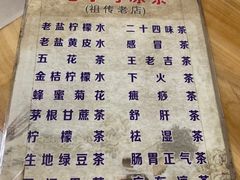 (祖传老店)
老盐柠檬水 二十四味茶
老盐黄皮水 感冒茶
五花茶 王老吉茶
金桔柠檬水 下火茶
蜂蜜菊花茶 癍痧茶
茅根甘蔗茶 舒肝茶
柠檬茶 祛湿茶
生地绿豆茶 肠胃正气茶